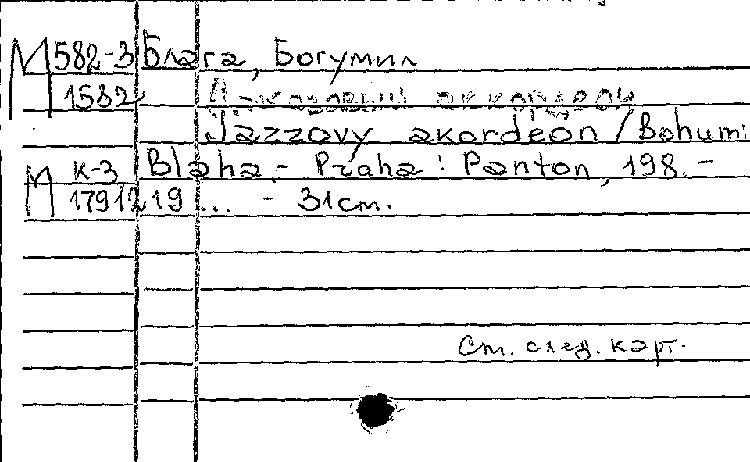 М 582-3 Блага, Богумил
1582 Джазовый аккордеон
Jazzovy akordeon / Bohumi
М К-3 Blaha. - Praha : Panton, 198. -
17912 19... - 31 cm.
См. след. карт.